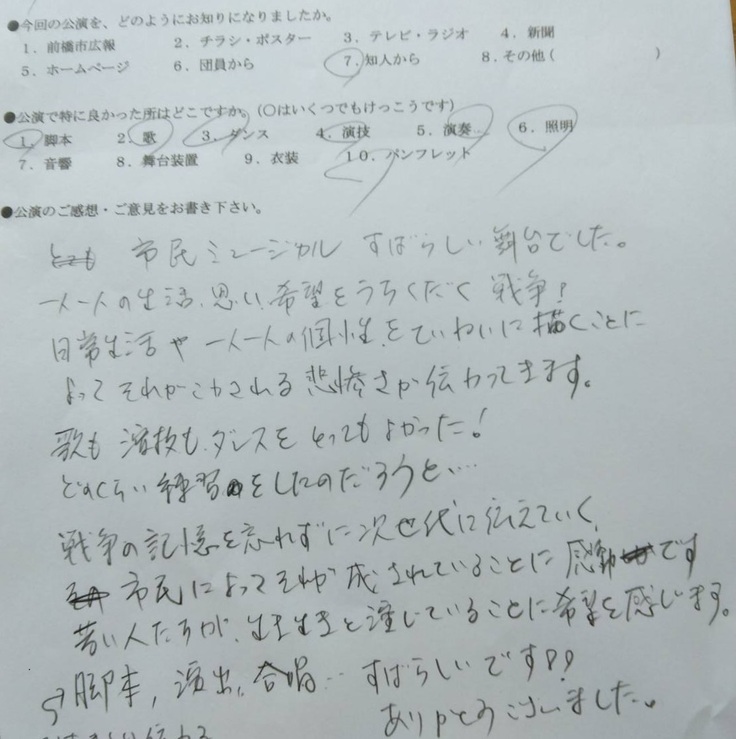 ●今回の公演を、どのようにお知りになりましたか。
1．前橋市広報 2．チラシ・ポスター 3．テレビ・ラジオ 4．新聞
5．ホームページ 6．団員から 7．知人から 8．その他（ ）
●公演で特に良かった所はどこですか。（○はいくつでもけっこうです）
1．脚本 2．歌 3．ダンス 4．演技 5．演奏 6．照明
7．音響 8．舞台装置 9．衣装 10．パンフレット
●公演のご感想・ご意見をお書き下さい。
市民ミュージカル すばらしい舞台でした。
一人一人の生活、思い、希望をうちくだく 戦争！
日常生活や一人一人の個性をていねいに描くことに
よってそれがこわされる悲惨さが伝わってきます。
歌も演技も、ダンスも とってもよかった！
どのくらい練習をしたのだろうと…
戦争の記憶を忘れずに次世代に伝えていく、
市民によってそれが成されていることに感動です
若い人たちが、生き生きと演じていることに希望を感じます。
脚本，演出，合唱… すばらしいです！！
ありがとうございました。